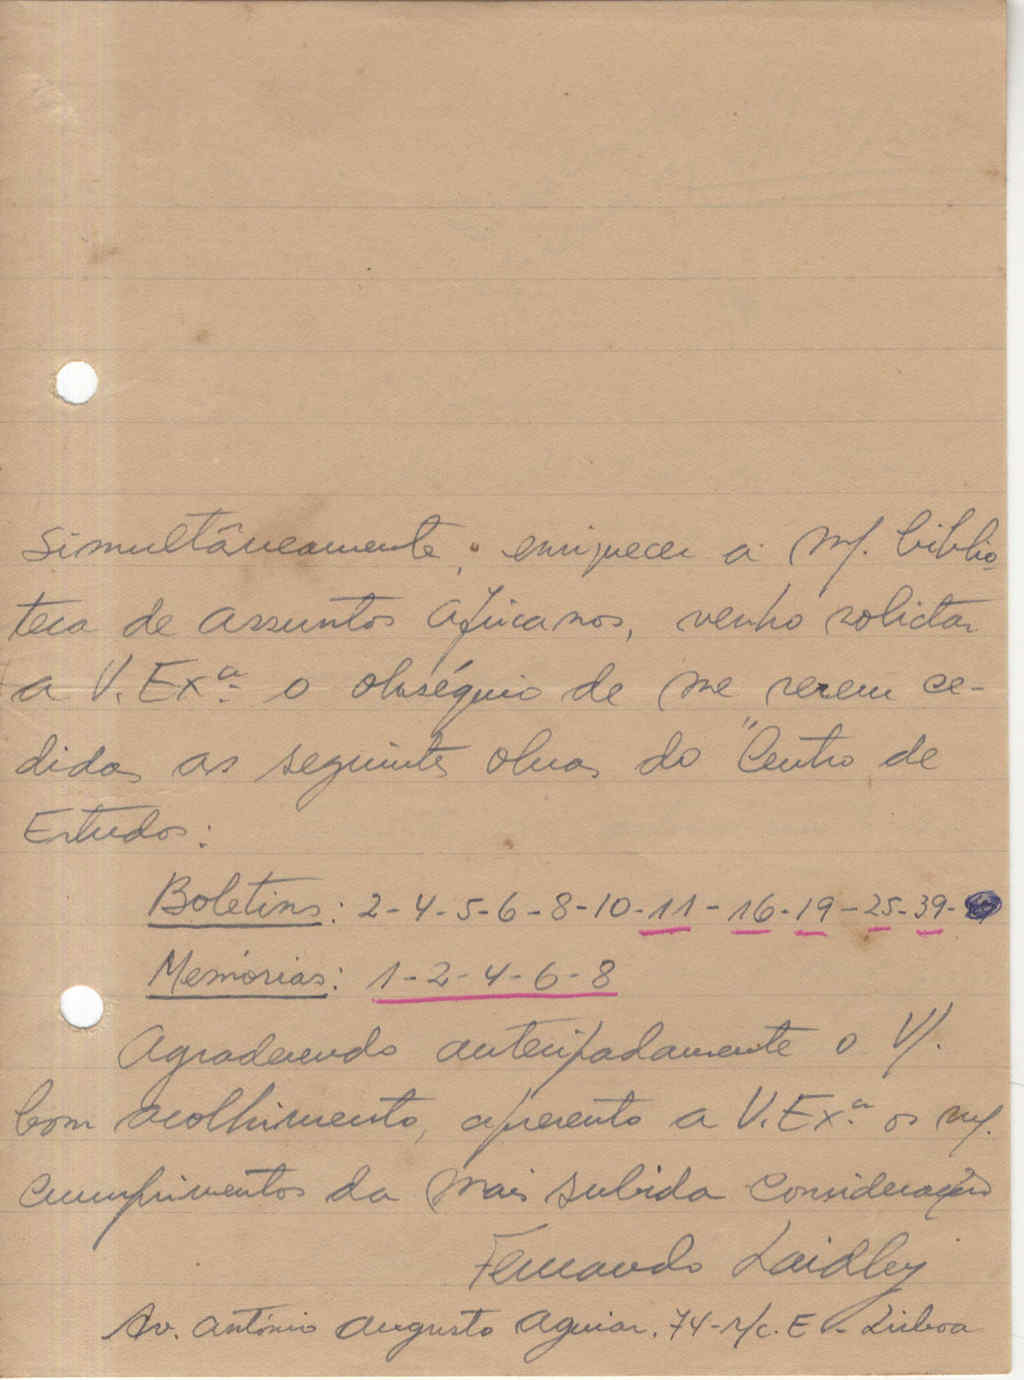 simultâneamente, enriquecer a m/. biblio-
teca de assuntos africanos, venho solicitar
a V. Exª. o obséquio de me serem ce-
didas as seguintes obras do "Centro de
Estudos:
Boletins: 2-4-5-6-8-10-11-16-19-25-39-
Memórias: 1-2-4-6-8
Agradecendo antecipadamente o V/.
bom acolhimento, apresento a V. Exª. os m/.
cumprimentos da mais subida consideração
Fernando Laidley
Av. António Augusto Aguiar. 74-r/c. E - Lisboa